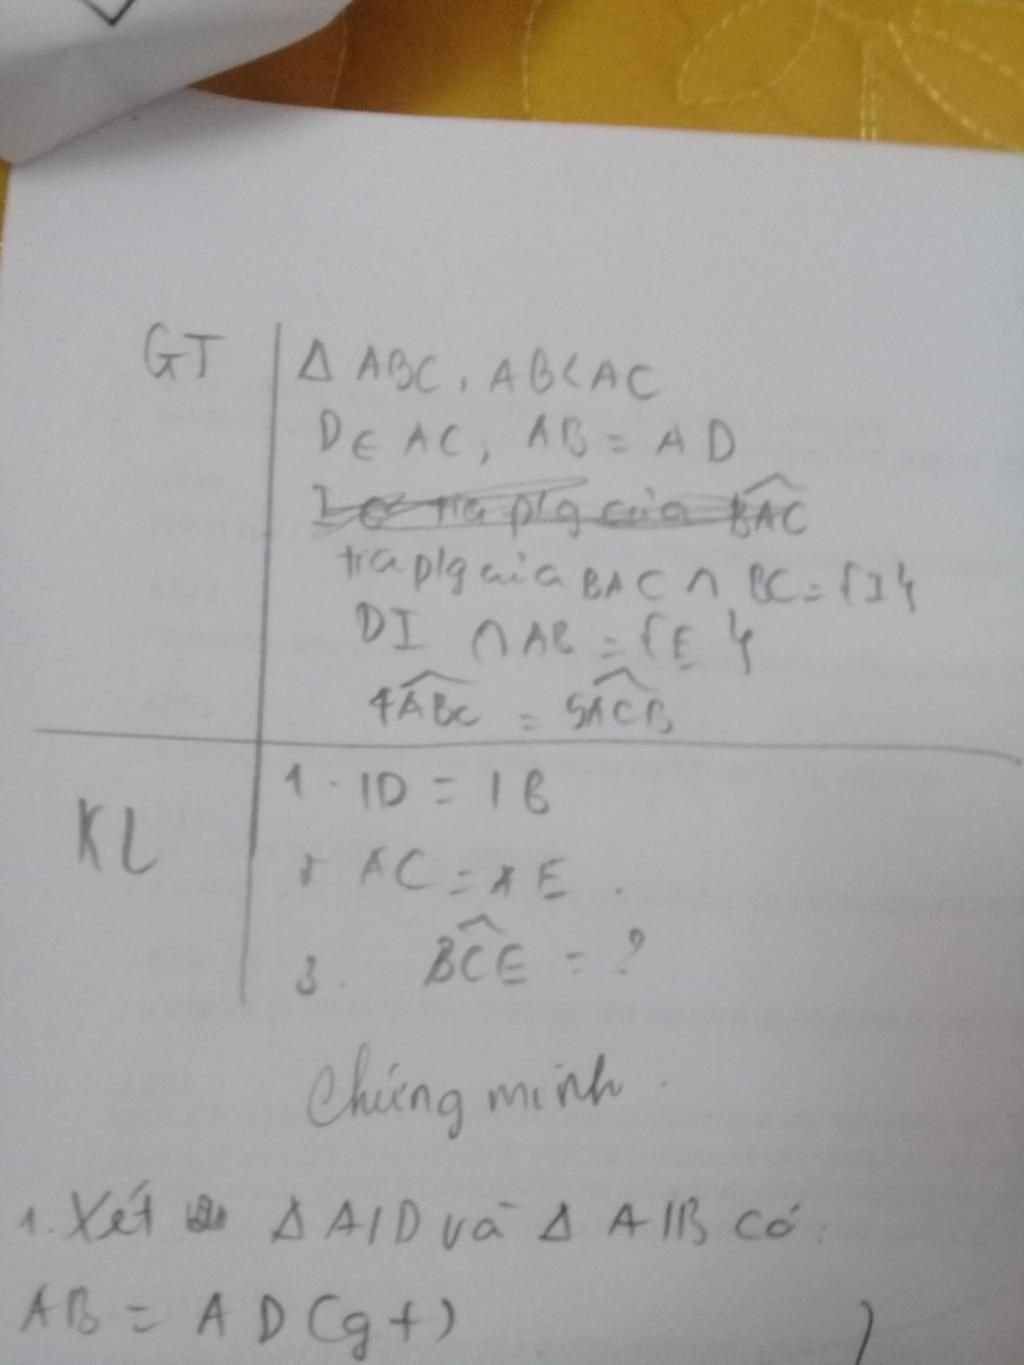 GT
Δ ABC, AB < AC
D ∈ AC, AB = AD
tia p/g của BAC ∩ BC = {I}
DI ∩ AB = {E}
4ABC = 5ACB
KL
1. ID = IB
AC = AE.
3. BCE = ?
Chứng minh.
1. Xét Δ AID và Δ AIB có:
AB = AD (gt)